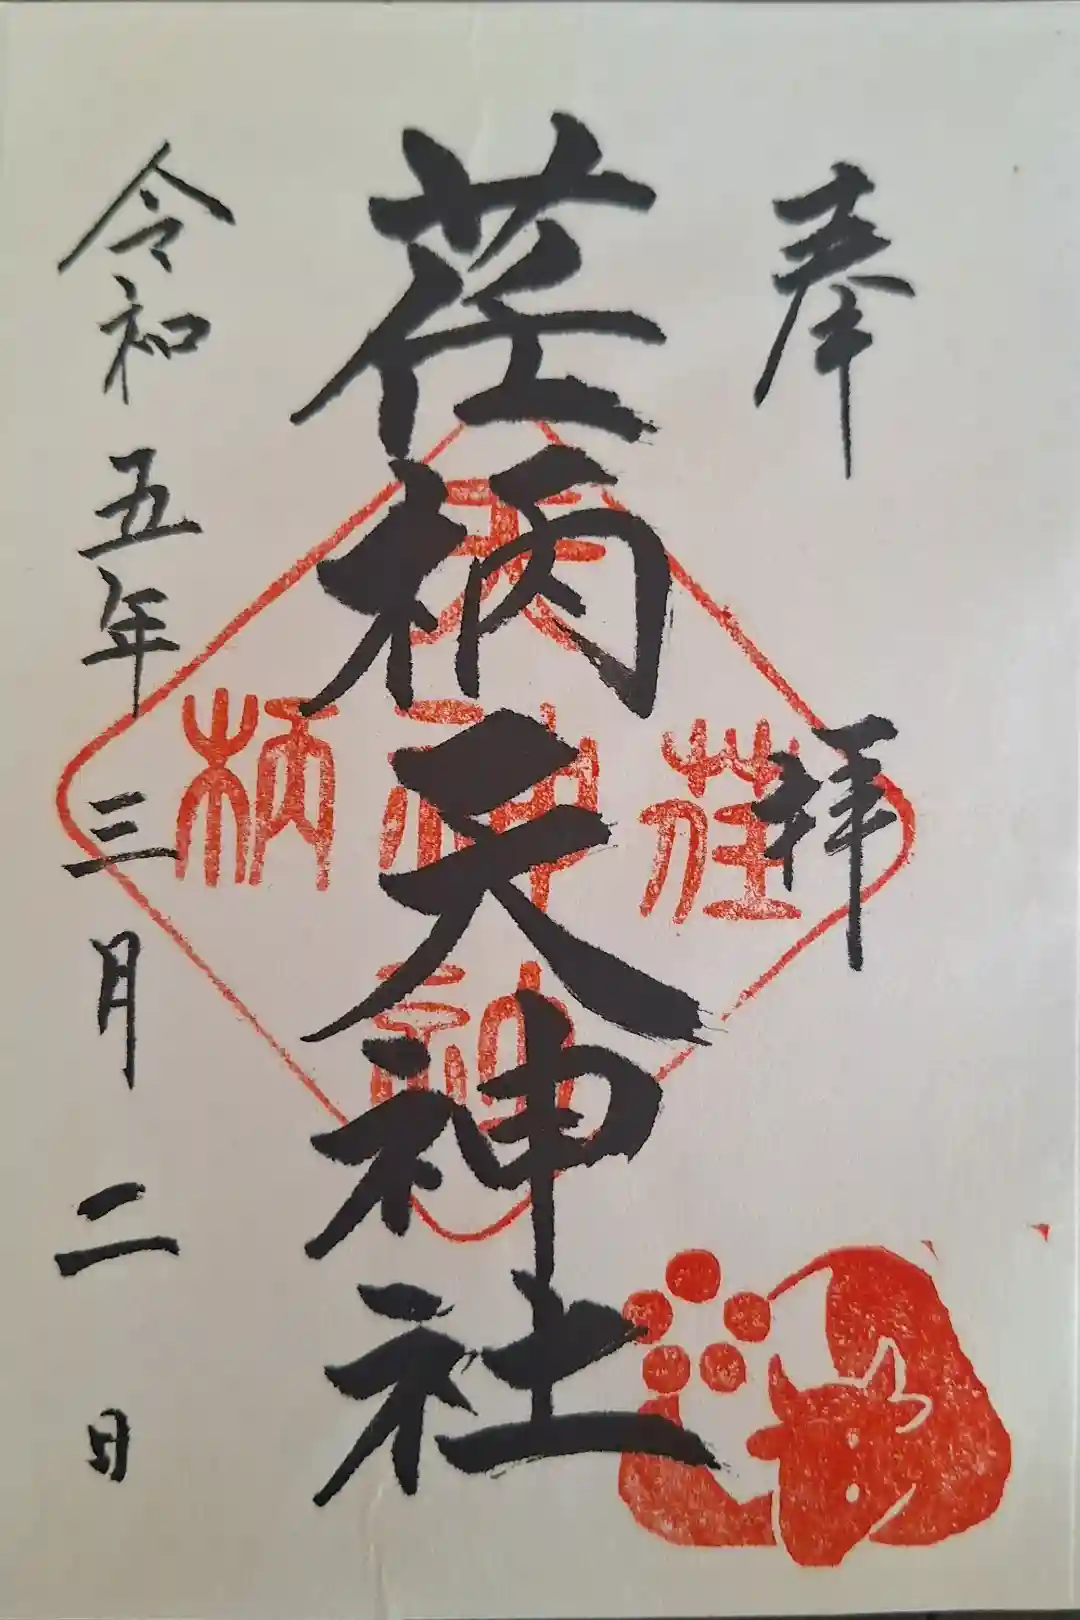 奉拝
荏柄天神社
令和五年三月二日
荏
天
神
神
柄